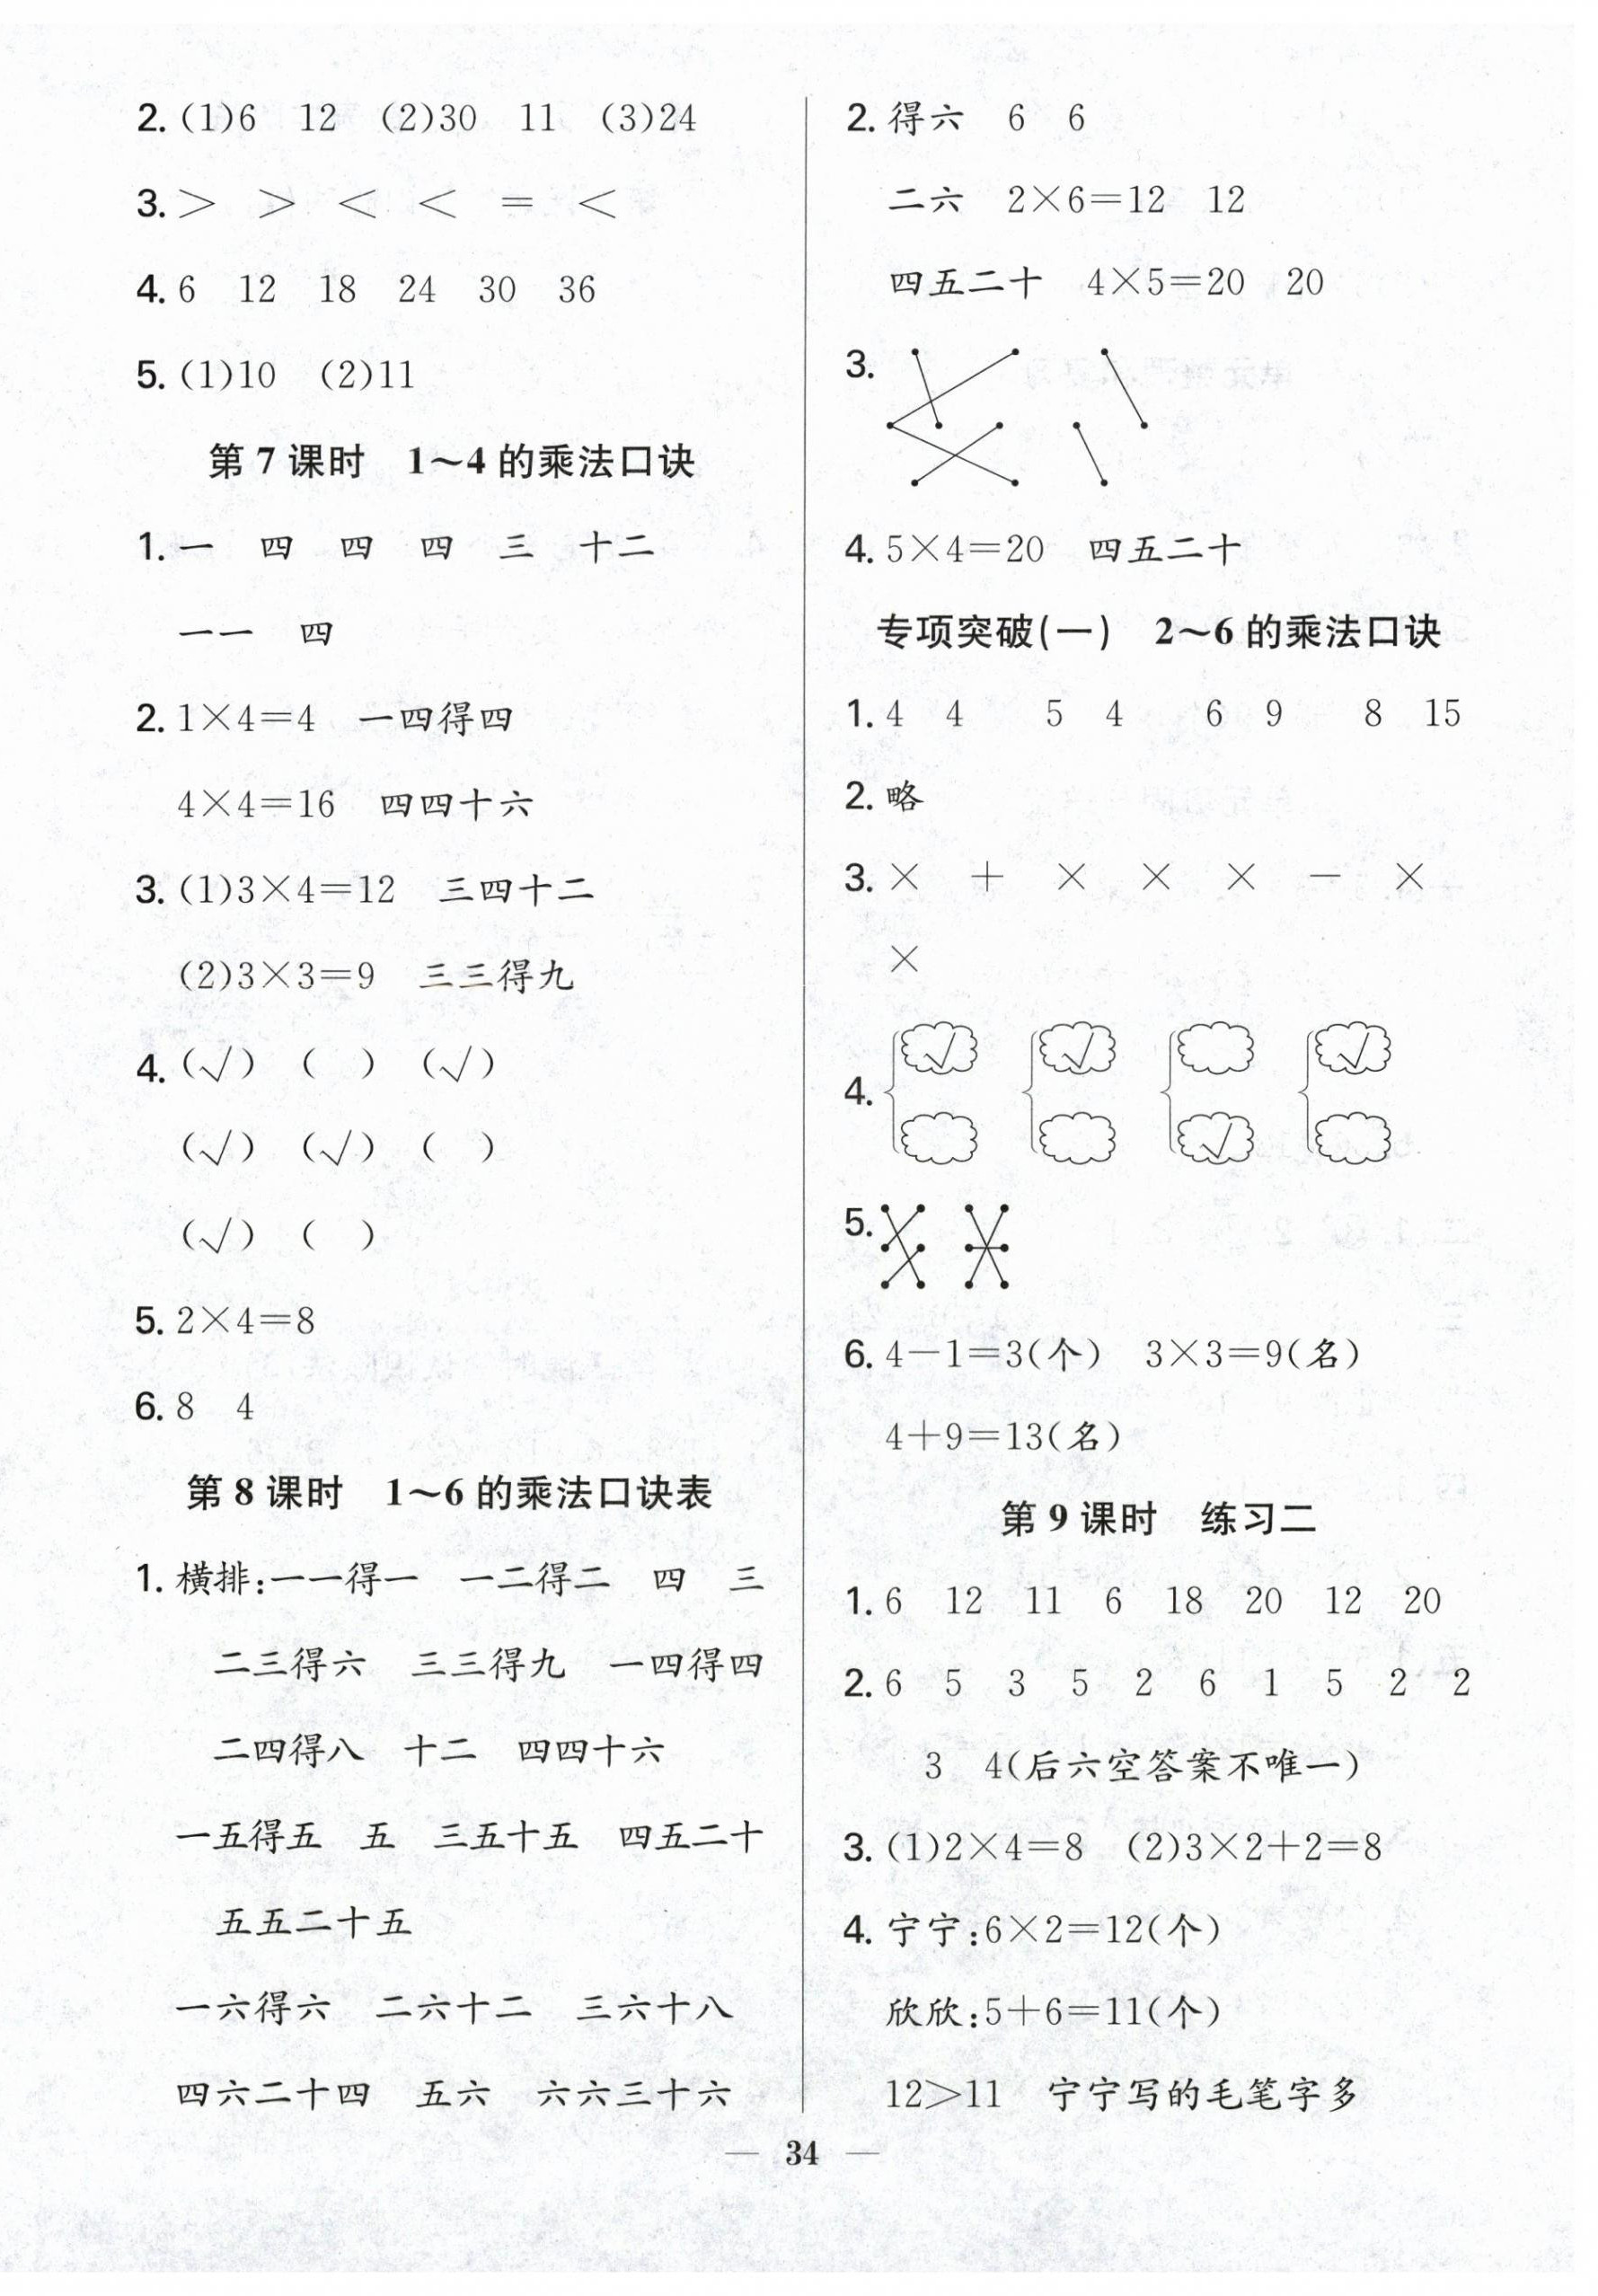 2. (1)6 12 (2)30 11 (3)24
3. > > < < = <
4. 6 12 18 24 30 36
5. (1)10 (2)11
第 7 课时 1～4 的乘法口诀
1. 一 四 四 四 三 十二
一一 四
2. 1×4=4 一四得四
4×4=16 四四十六
3. (1)3×4=12 三四十二
(2)3×3=9 三三得九
4. (√) ( ) (√)
(√) (√) ( )
(√) ( )
5. 2×4=8
6. 8 4
第 8 课时 1～6 的乘法口诀表
1. 横排:一一得一 一二得二 四 三
二三得六 三三得九 一四得四
二四得八 十二 四四十六
一五得五 五 三五十五 四五二十
五五二十五
一六得六 二六十二 三六十八
四六二十四 五六 六六三十六
2. 得六 6 6
二六 2×6=12 12
四五二十 4×5=20 20
3.
4. 5×4=20 四五二十
专项突破(一) 2～6 的乘法口诀
1. 4 4 5 4 6 9 8 15
2. 略
3. × + × × × − ×
×
4. √ √ √
√
5.
6. 4−1=3(个) 3×3=9(名)
4+9=13(名)
第 9 课时 练习二
1. 6 12 11 6 18 20 12 20
2. 6 5 3 5 2 6 1 5 2 2
3 4(后六空答案不唯一)
3. (1)2×4=8 (2)3×2+2=8
4. 宁宁:6×2=12(个)
欣欣:5+6=11(个)
12>11 宁宁写的毛笔字多
— 34 —